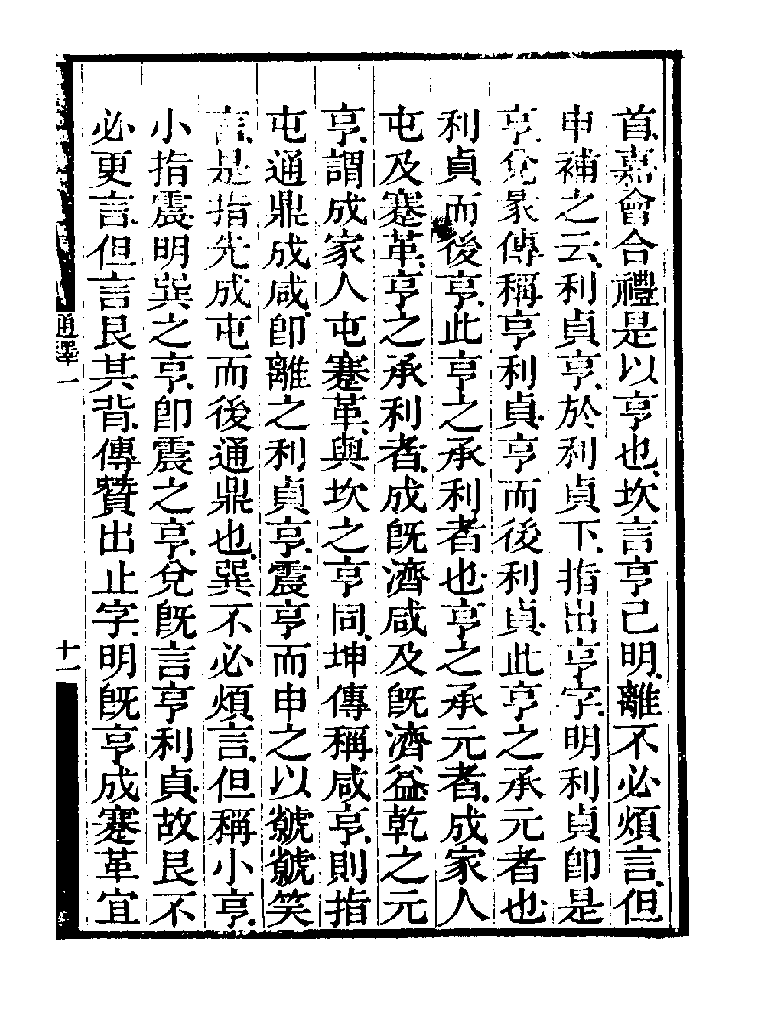 首嘉會合禮是以亨也坎言亨已明離不必煩言但
申補之云利貞亨於利貞下指出亨字明利貞卽是
亨兌彖傳稱亨利貞亨而後利貞此亨之承元者也
利貞而後亨此亨之承利者也亨之承元者成家人
屯及蹇革亨之承利者成旣濟咸及旣濟益乾之元
亨謂成家人屯蹇革與坎之亨同坤傳稱咸亨則指
屯通鼎成咸卽離之利貞亨震亨而申之以虩虩笑
言是指先成屯而後通鼎也巽不必煩言但稱小亨
小指震明巽之亨卽震之亨兌旣言亨利貞故艮不
必更言但言艮其背傳贊出止字明旣亨成蹇革宜
通釋一
十一